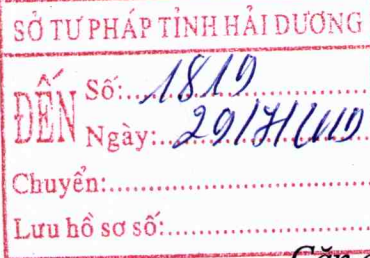 SỞ TƯ PHÁP TỈNH HẢI DƯƠNG
ĐẾN
Số:...1819...
Ngày:..29/7/
Chuyển:...
Lưu hồ sơ số:...
Căn